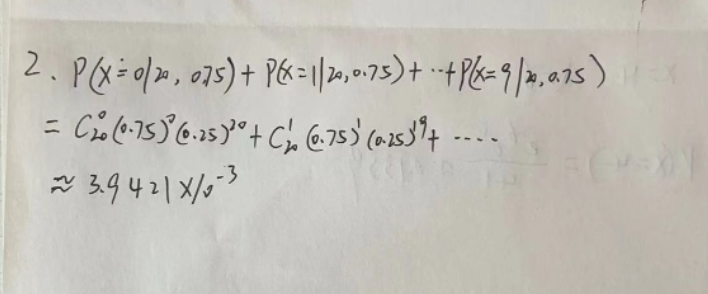 2、P(X=0|20, 0.75) + P(X=1|20,0.75) + ‥ + P(X=9|20,0.75)
= C₂₀⁰(0.75)⁰(0.25)²⁰ + C₂₀¹(0.75)¹(0.25)¹⁹ + ····
≈ 3.9421×10⁻³